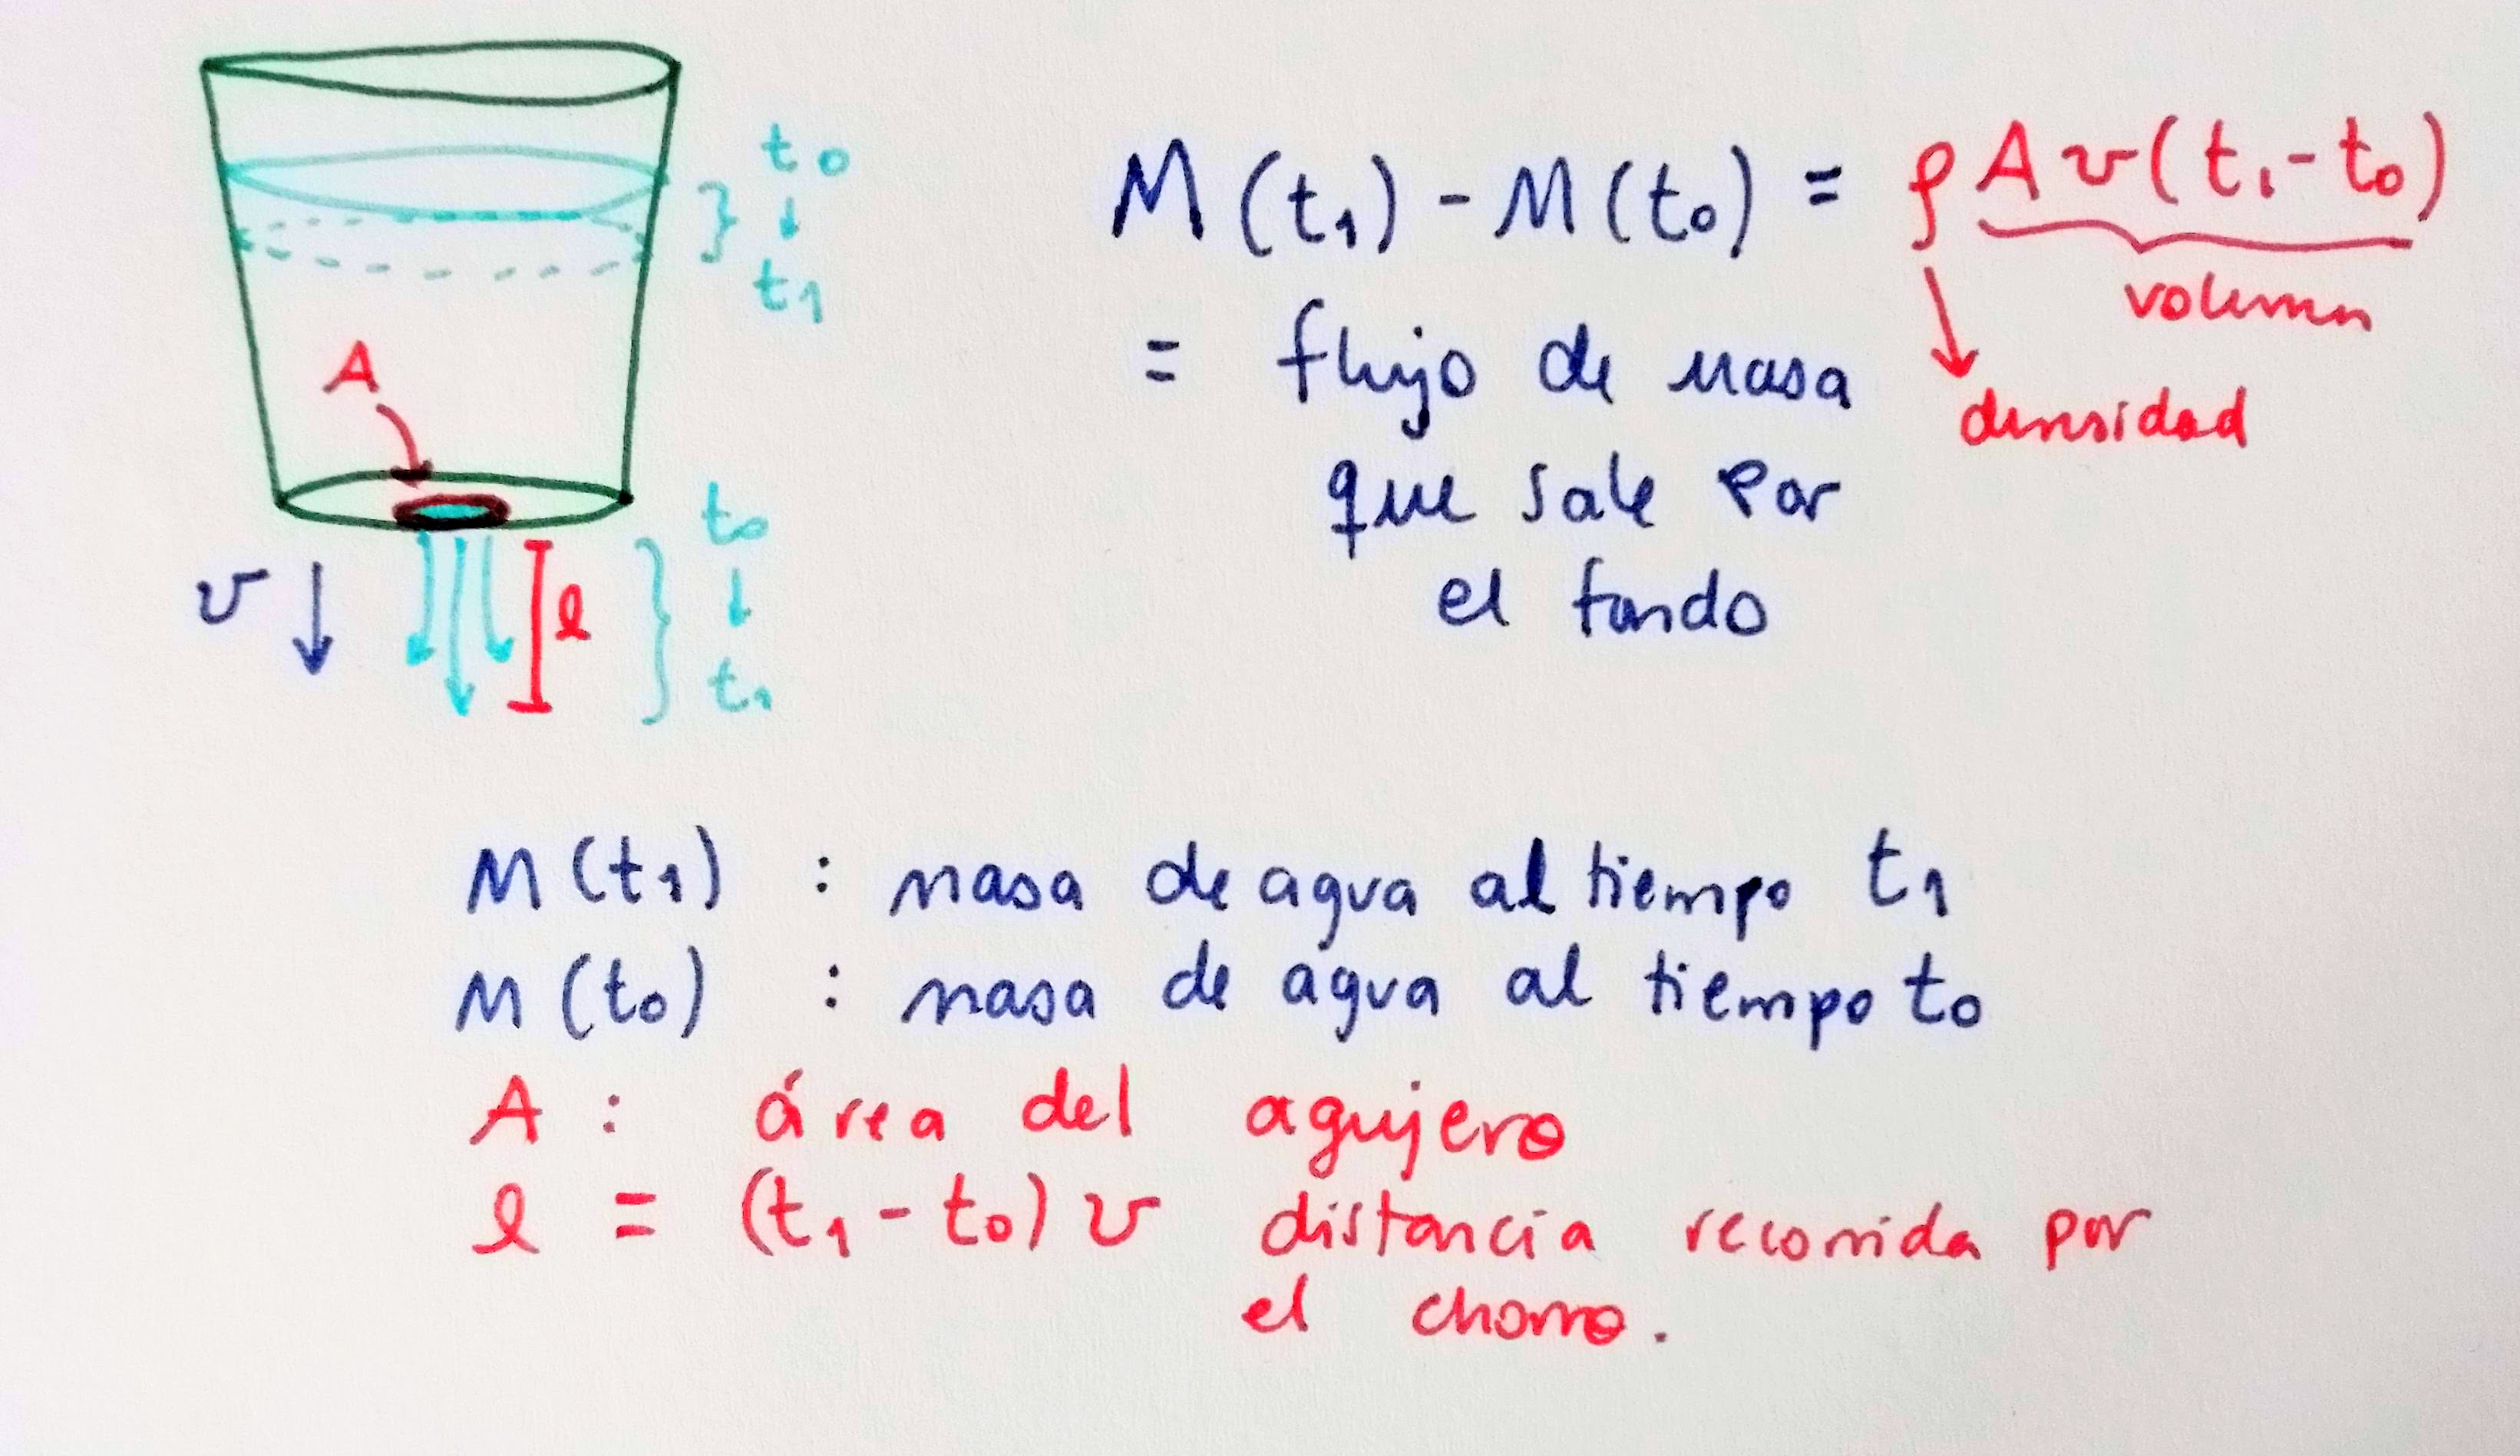 t0
↓
t1
A
v ↓
l
t0
↓
t1
M(t1) - M(t0) = ρ A v (t1 - t0)
volumen
densidad
= flujo de masa
que sale por
el fondo
M(t1) : masa de agua al tiempo t1
M(t0) : masa de agua al tiempo t0
A : área del agujero
l = (t1 - t0) v distancia recorrida por
el chorro.